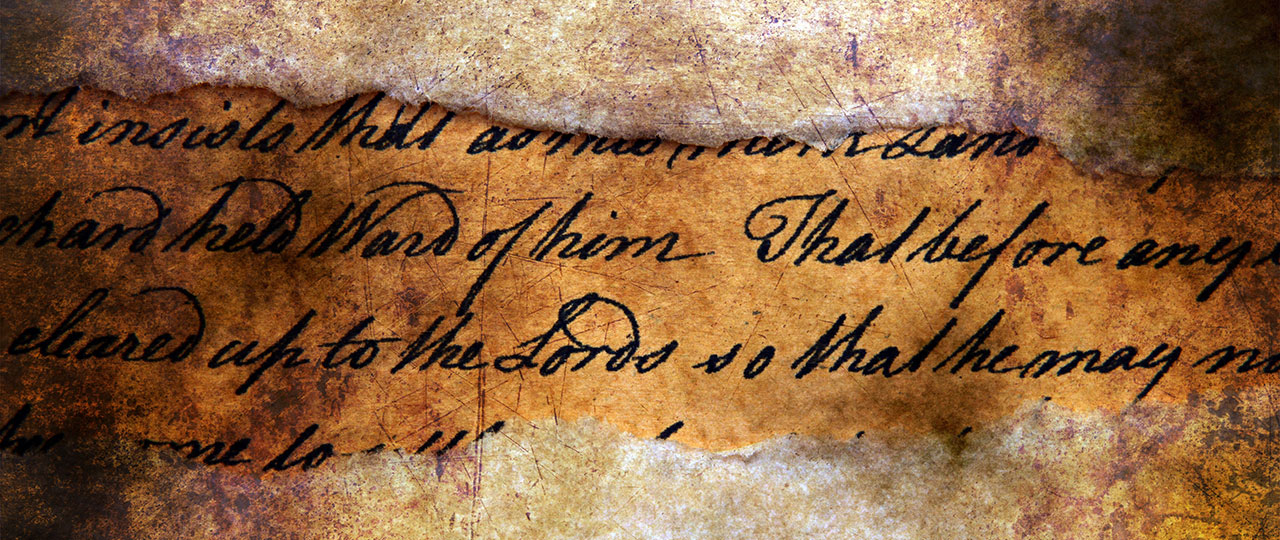 insists that
chard held Ward of him That before any
cleared up to the Lords so that he may no
me to